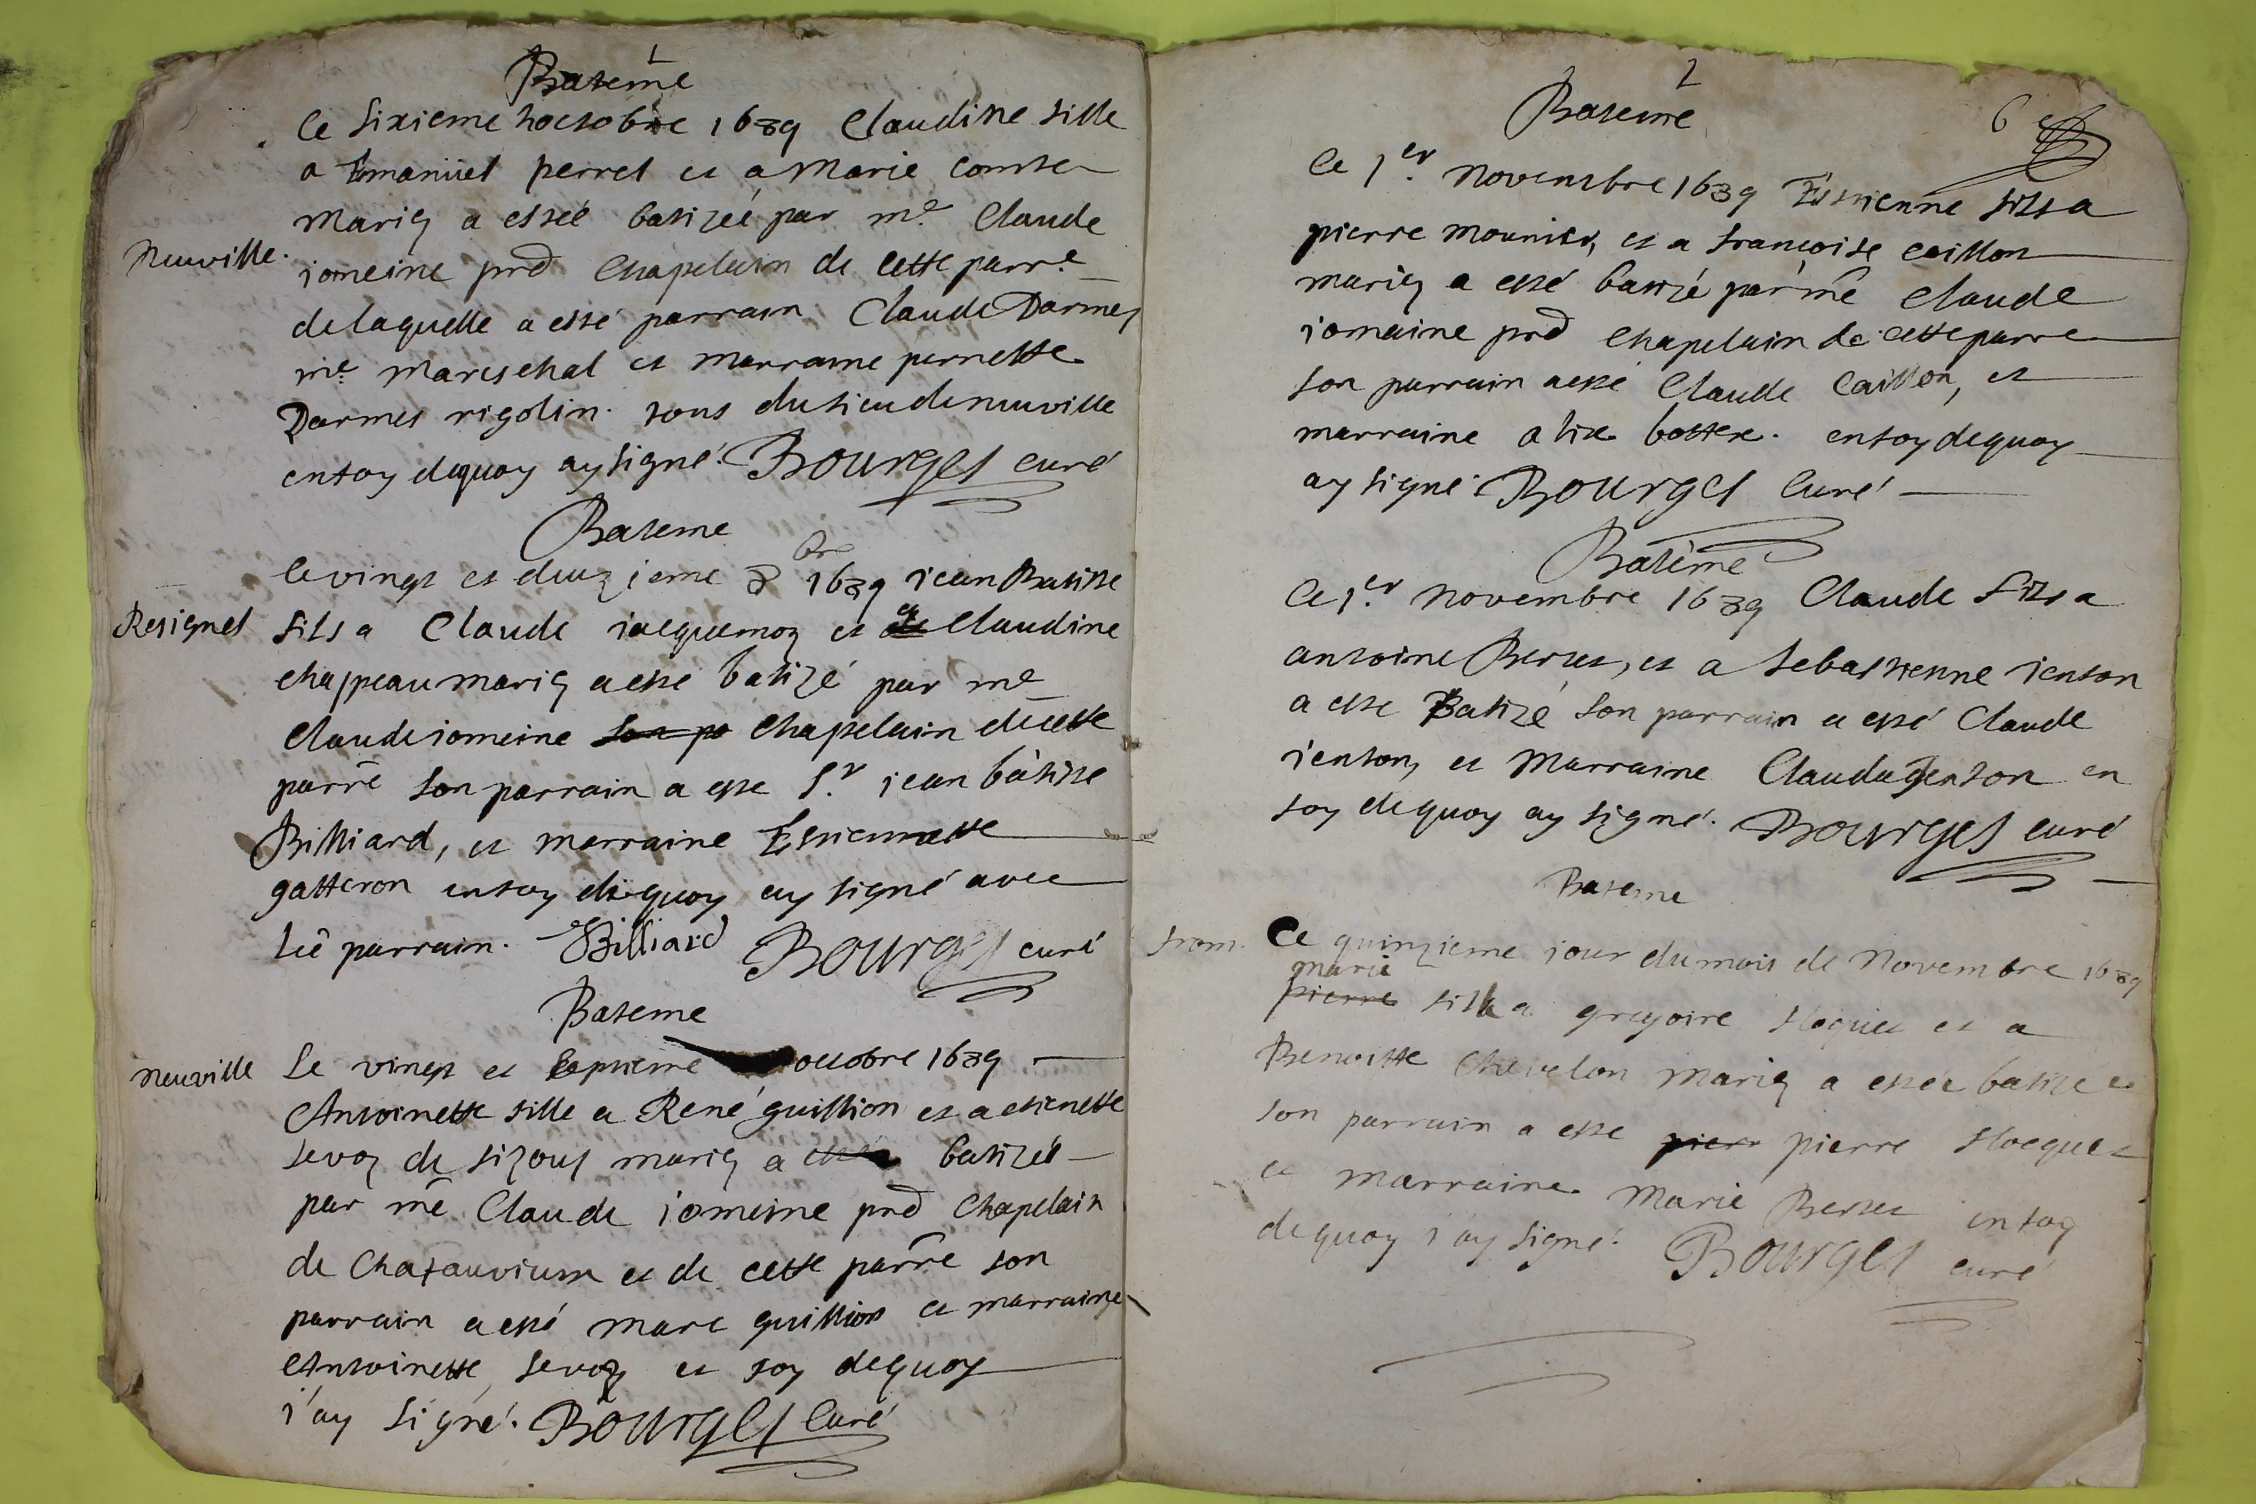 Bateme
Ce sixieme d'octobre 1689 Claudine fille
a Emanüel perret et a Marie comte
Neuville. mariez a estéé batizéé par me. Claude
iomeine prd chapelain de cette parre.
de laquelle a esté parrain Claude Darmes
me mareschal et marraine pernette
Darmes rigolin. tous du lieu de neuville
en foy de quoy ay signé. Bourges curé
Bateme
Ce vingt et deuzieme 8bre 1689 iean Batiste
Resignel fils a Claude iacquemoz et a Claudine
chappeau mariez a esté batizé par me
Claude iomeine son pa chapelain de cette
parre son parrain a esté Sr. iean batiste
Billiard, et marraine Estiennette
gatteron en foy de quoy ay signé avec
le parrain. Billiard Bourges curé
Bateme
Neuville Le vingt et septieme octobre 1689
Antoinette fille a René guillion et a etienette
sevoz de mariez a batizéé
par me Claude iomeine prd chapelain
de et de cette parre son
parrain a esté marc guillion et marraine
Antoinette sevoz et foy de quoy
i'ay signé. Bourges Curé
2
Bateme
6
Ce 1er. Novembre 1689 Estienne fils a
pierre mounier, et a francoise caillon
mariez a esté batizé par me Claude
iomaine prd chapelain de cette parre
son parrain a esté Claude Caillon, et
marraine alix bottex. en foy de quoy
ay signé. Bourges Curé
Bateme
Ce 1er. Novembre 1689 Claude fils a
antoine Bertet, et a Sebastienne ienton
a esté Batizé son parrain a esté Claude
ienton, et Marraine Clauda Jenton en
foy de quoy ay signé. Bourges curé
Bateme
Ce quinzieme iour du mois de Novembre 1689
marie
pierre fille a gregoire et a
Benoitte Chevelon mariez a estéé batizéé
son parrain a esté pierr pierre
et marraine Marie Bertet en foy
de quoy i'ay signé. Bourges curé